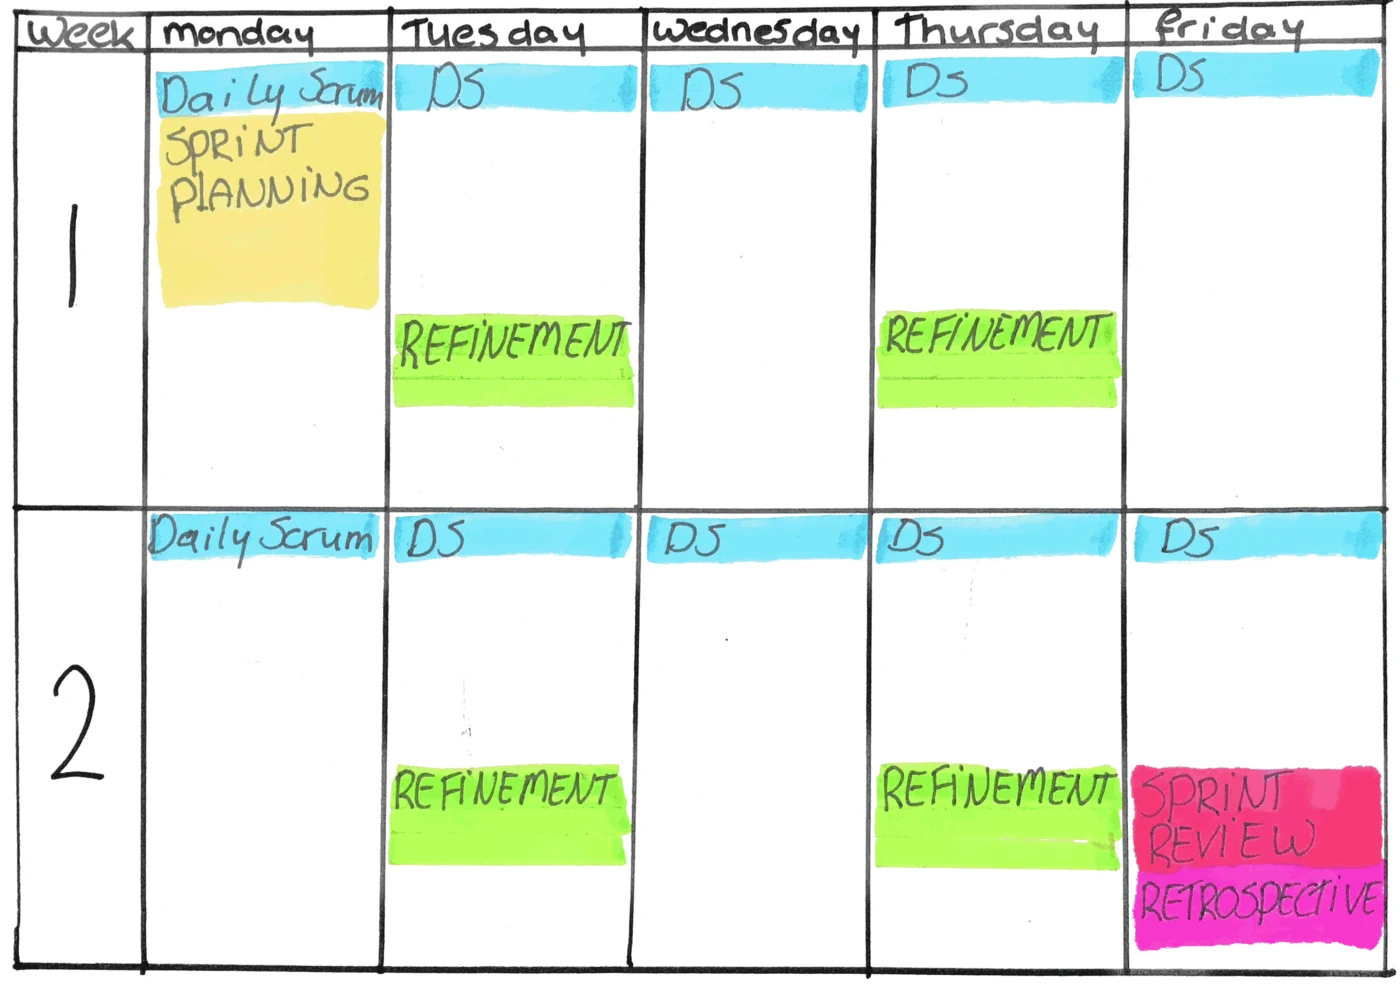 Week monday Tuesday Wednesday Thursday friday
1
Daily Scrum DS DS DS DS
SPRiNT
PLANNiNG
REFiNEMENT REFiNEMENT
2
Daily Scrum DS DS DS DS
REFiNEMENT REFiNEMENT SPRiNT
REViEW
RETROSPECTiVE